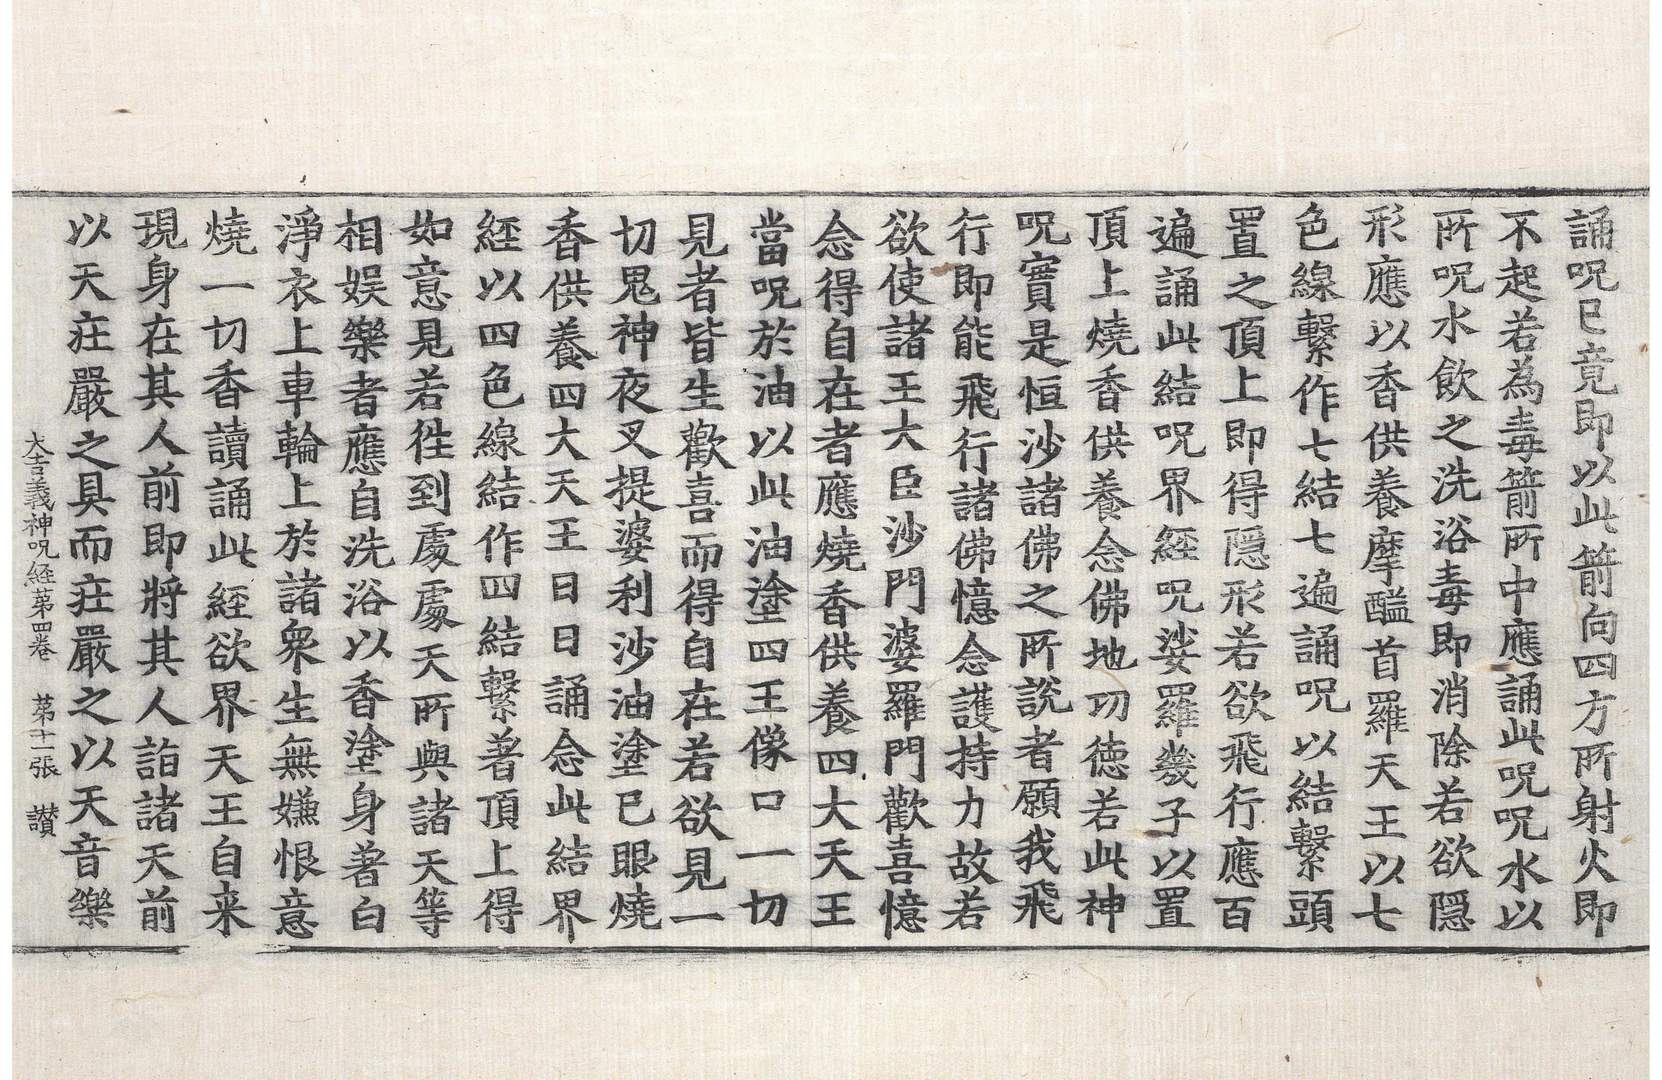 誦呪已竟即以此箭向四方所射火即
不起若為毒箭所中應誦此呪呪水以
所呪水飲之洗浴毒即消除若欲隱
形應以香供養摩醯首羅天王以七
色線繫作七結七遍誦呪以結繫頭
置之頂上即得隱形若欲飛行應百
遍誦此結呪界經呪娑羅幾子以置
頂上燒香供養念佛地功德若此神
呪實是恒沙諸佛之所說者願我飛
行即能飛行諸佛憶念護持力故若
欲使諸王大臣沙門婆羅門歡喜憶
念得自在者應燒香供養四大天王
當呪於油以此油塗四王像口一切
見者皆生歡喜而得自在若欲見一
切鬼神夜叉提婆利沙油塗已眼燒
香供養四大天王日日誦念此結界
經以四色線結作四結繫著頂上得
如意見若徃到處處天所與諸天等
相娛樂者應自洗浴以香塗身著白
淨衣上車輪上於諸衆生無嫌恨意
燒一切香讀誦此經欲界天王自来
現身在其人前即將其人詣諸天前
以天荘嚴之具而荘嚴之以天音樂
大吉義神呪経苐四卷 苐十一張 讃